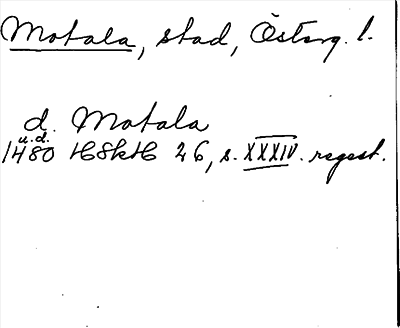 Motala, stad, Österg. l.
d. Motala
u.d.
1480 HSkH 26, s. XXXIV. regest.